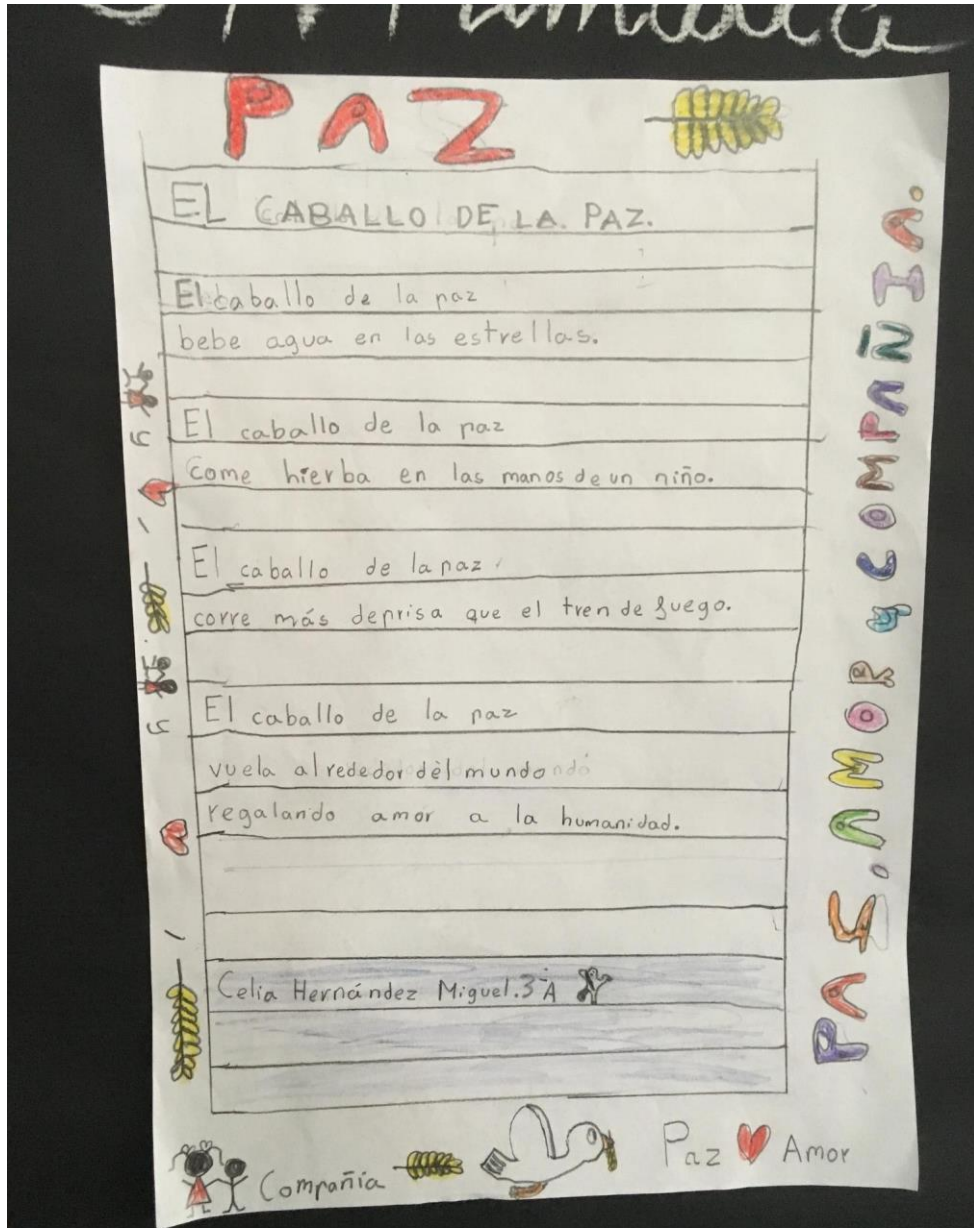 PAZ
EL CABALLO DE LA PAZ.
El caballo de la paz
bebe agua en las estrellas.
El caballo de la paz
Come hierba en las manos de un niño.
El caballo de la paz
corre más deprisa que el tren de fuego.
El caballo de la paz
vuela alrededor del mundo
regalando amor a la humanidad.
Celia Hernández Miguel. 3ºA
Compañia
Paz Amor
PAS, AMOR y COMPAÑIA.
y
y